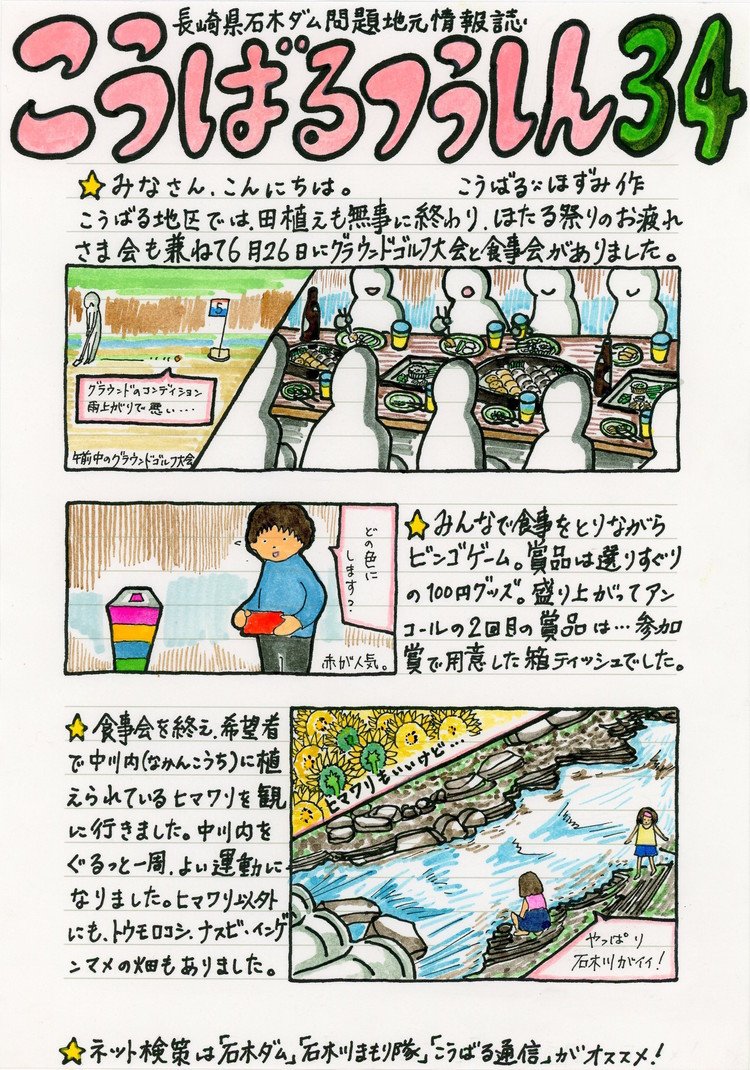 長崎県石木ダム問題地元情報誌
こうばるつうしん34
みなさん、こんにちは。 こうばるほずみ作
こうばる地区では、田植えも無事に終わり、ほたる祭りのお疲れ
さま会も兼ねて6月26日にグラウンドゴルフ大会と食事会がありました。
6
グラウンドのコンディション
雨上がりで悪い…
午前中のグラウンドゴルフ大会
どの色に
します?
赤が人気。
みんなで食事をとりながら
ビンゴゲーム。賞品は選りすぐり
の100円グッズ。盛り上がってアン
コールの2回目の賞品は…参加
賞で用意した箱ティッシュでした。
食事会を終え、希望者
で中川内(なかんこうち)に植
えられているヒマワリを観
に行きました。中川内を
ぐるっと一周、よい運動に
なりました。ヒマワリ以外
にも、トウモロコシ、ナスビ・インゲ
ンマメの畑もありました。
ヒマワリもいいけど…
やっぱり
石木川がイイ!
ネット検策は「石木ダム」「石木川まもり隊」「こうばる通信」がオススメ!